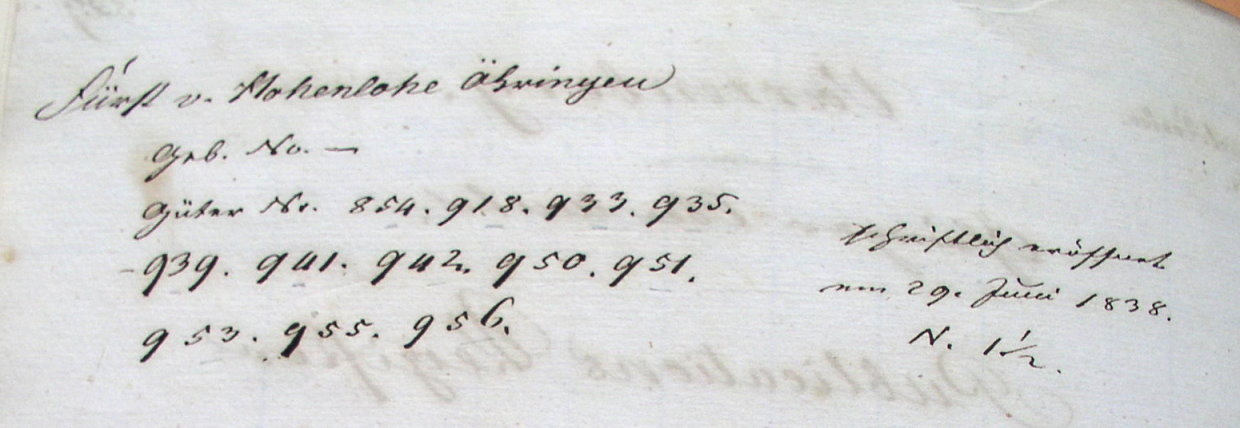 Fürst v. Hohenlohe Öhringen
Geb. No. —
Güter Nr. 854. 918. 933. 935.
939. 941. 942. 950. 951.
953. 955. 956.
schriftlich eröffnet
am 29. Juni 1838.
N. 1½.